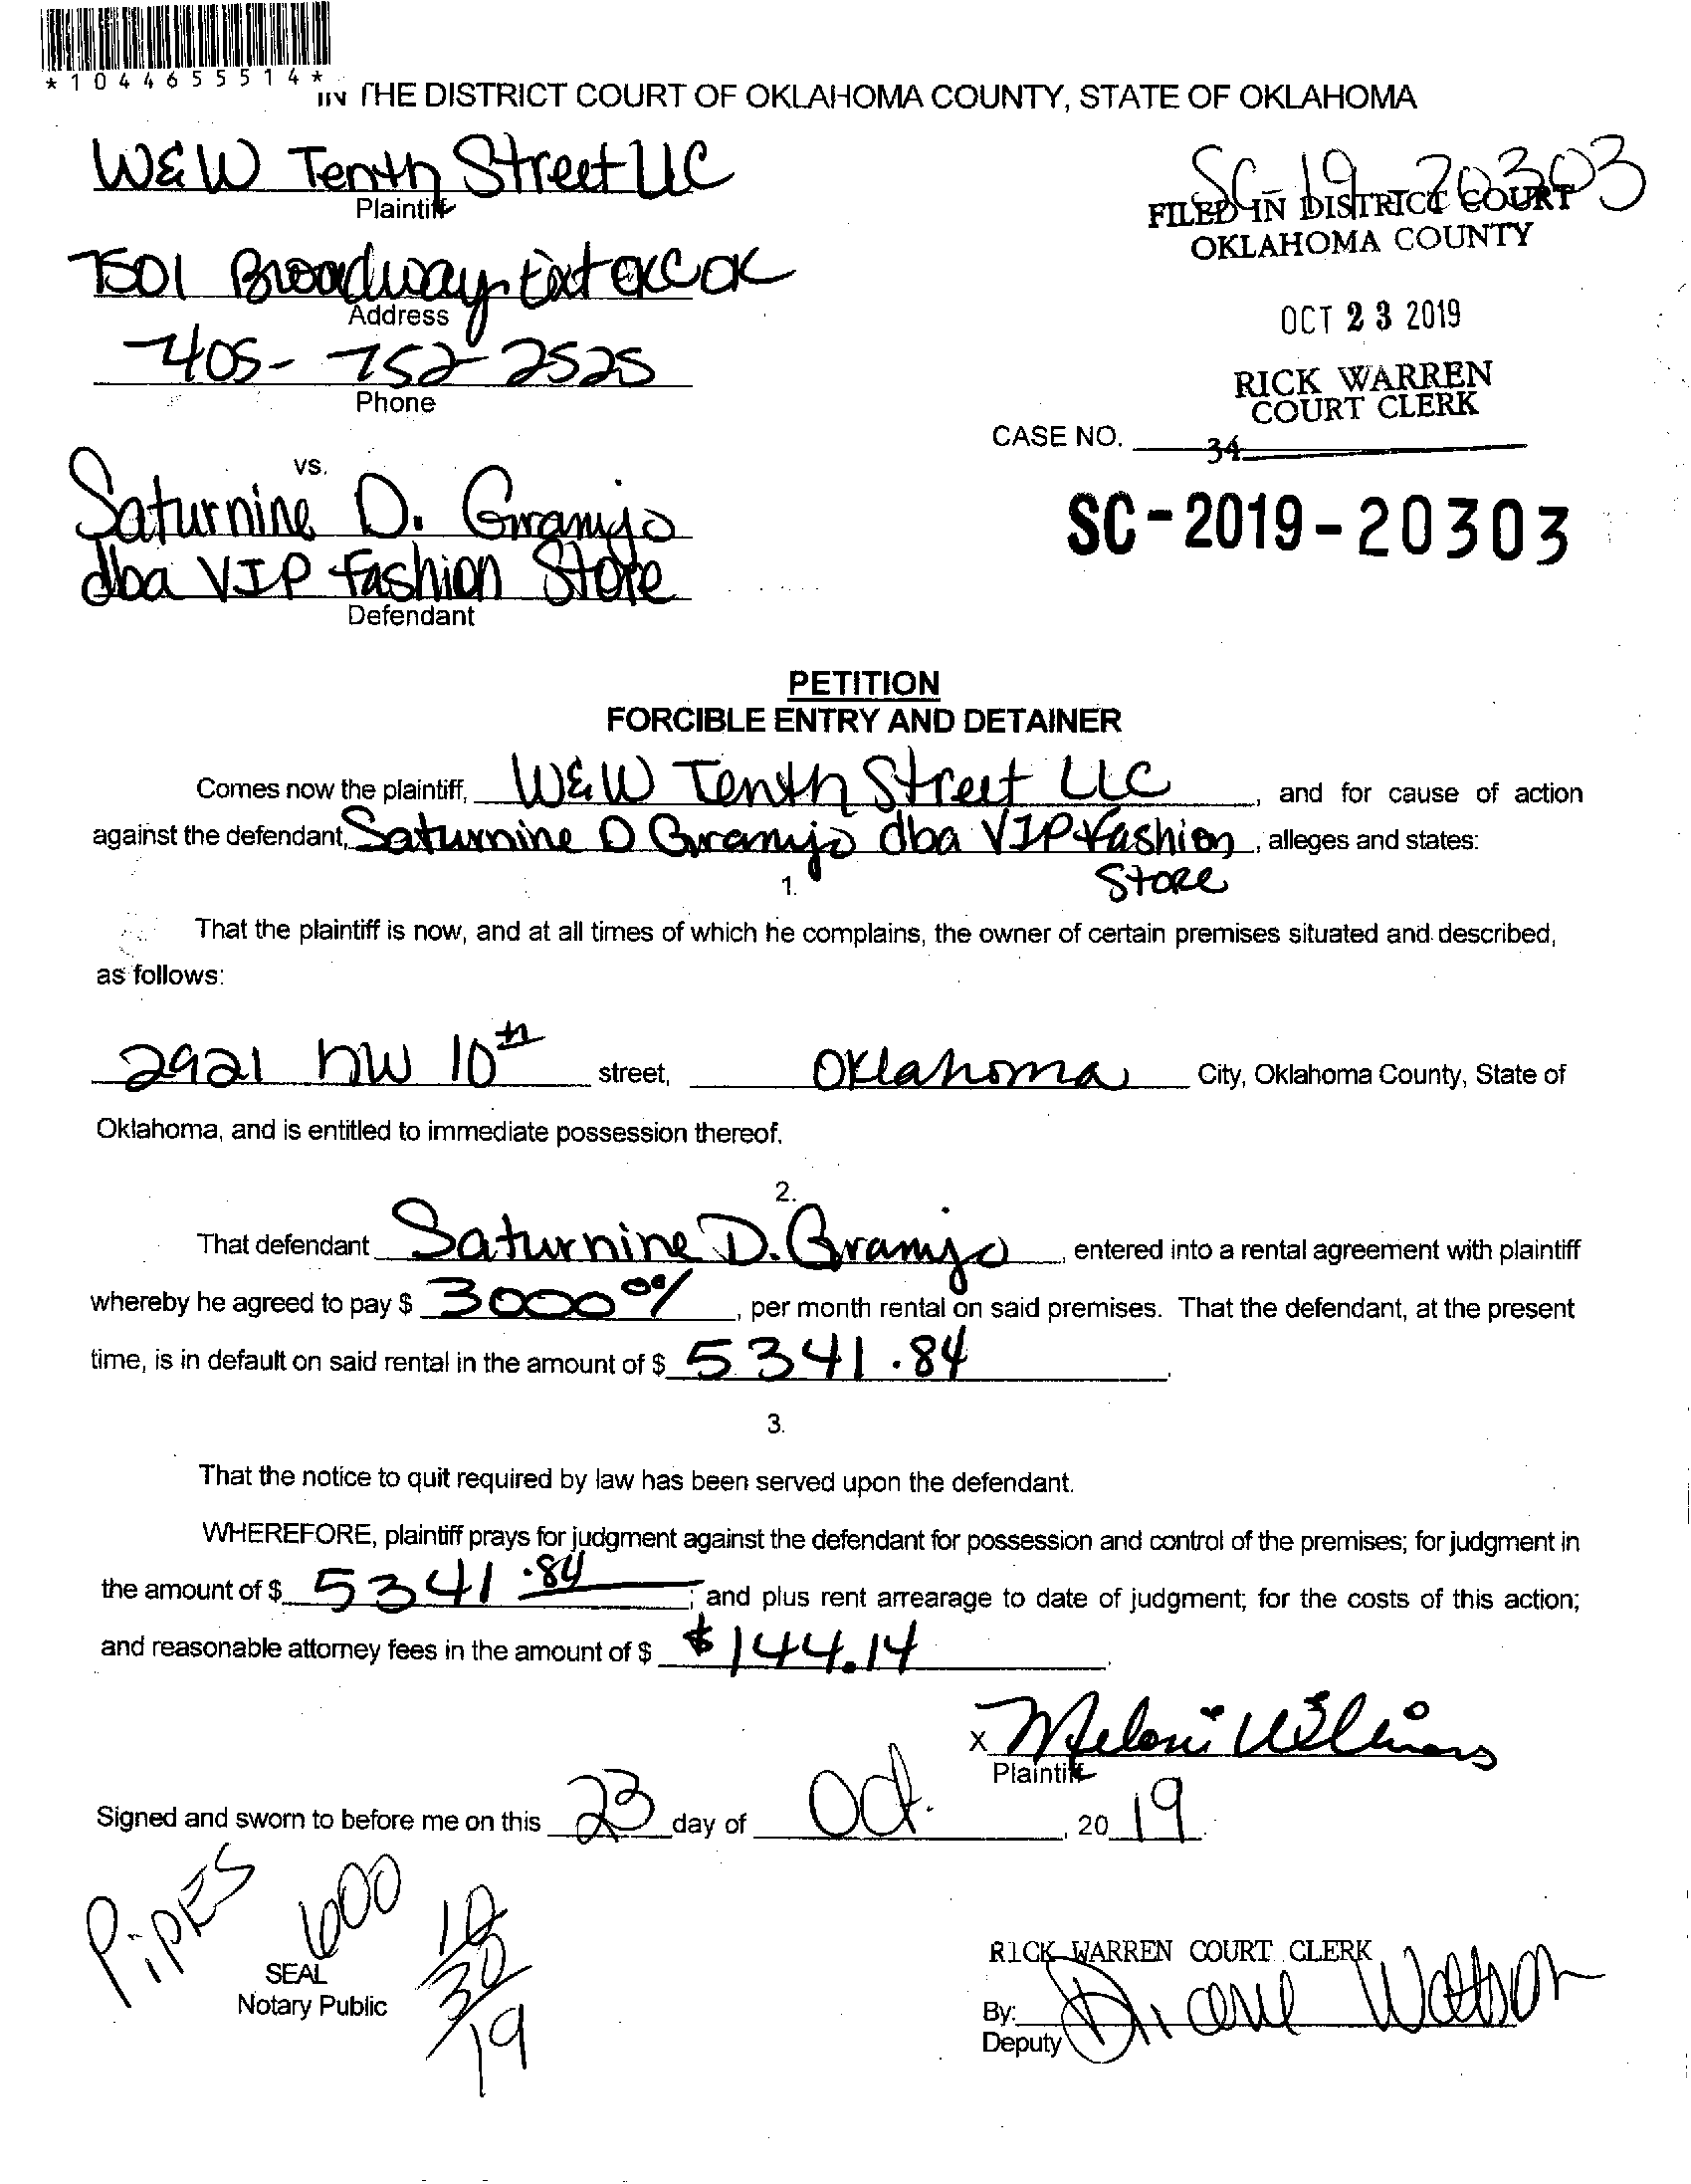 *1044655514*
IN THE DISTRICT COURT OF OKLAHOMA COUNTY, STATE OF OKLAHOMA
W&W Tenth Street LLC
Plaintiff
SC-19-20303
FILED IN DISTRICT COURT
OKLAHOMA COUNTY
7501 Broadway Ext OKC OK
Address
OCT 23 2019
405-752-2525
Phone
RICK WARREN
COURT CLERK
CASE NO.
34
vs.
Saturnine D.
dba VIP Fashion Store
Defendant
SC-2019-20303
PETITION
FORCIBLE ENTRY AND DETAINER
Comes now the plaintiff, W&W Tenth Street LLC, and for cause of action
against the defendant, Saturnine D dba VIP Fashion, alleges and states:
Store
1.
That the plaintiff is now, and at all times of which he complains, the owner of certain premises situated and described,
as follows:
2921 NW 10th street, Oklahoma City, Oklahoma County, State of
Oklahoma, and is entitled to immediate possession thereof.
2.
That defendant Saturnine D., entered into a rental agreement with plaintiff
whereby he agreed to pay $ 3000 00/, per month rental on said premises. That the defendant, at the present
time, is in default on said rental in the amount of $ 5341.84.
3.
That the notice to quit required by law has been served upon the defendant.
WHEREFORE, plaintiff prays for judgment against the defendant for possession and control of the premises; for judgment in
the amount of $ 5341.84; and plus rent arrearage to date of judgment; for the costs of this action;
and reasonable attorney fees in the amount of $ $144.14.
X Meloni Williams
Plaintiff
Signed and sworn to before me on this 23 day of Oct., 2019.
PIPES 600 10/30/19
SEAL
Notary Public
RICK WARREN COURT CLERK
By: Diane Watson
Deputy